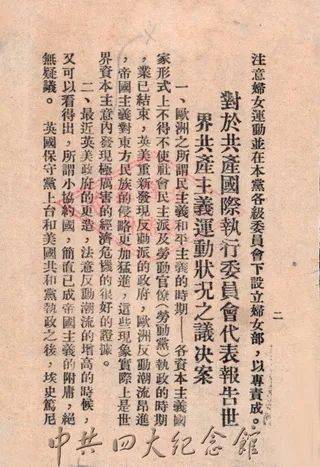 注意婦女運動並在本黨各級委員會下設立婦女部，以專責成。
二
對於共產國際執行委員會代表報告世
界共產主義運動狀况之議决案
一、歐洲之所謂民主義和平主義的時期——各資本主義國
家形式上不得不使社會民主派及勞動官僚（勞動黨）執政的時期
，業已結束，英美重新發現反動派的政府，歐洲反動潮流昂進
，帝國主義對東方民族的侵略更加猛進，這些現象實際上是世
界資本主意內發現極厲害的經濟危機的很好的證據。
二、最近英美政府的更造，法意反動潮流的增高的時候，
又可以看得出，所謂小協約國，簡直已成帝國主義的附庸，絕
無疑議。　英國保守黨上台和美國共和黨執政之後，埃史篤尼
中共四大纪念館